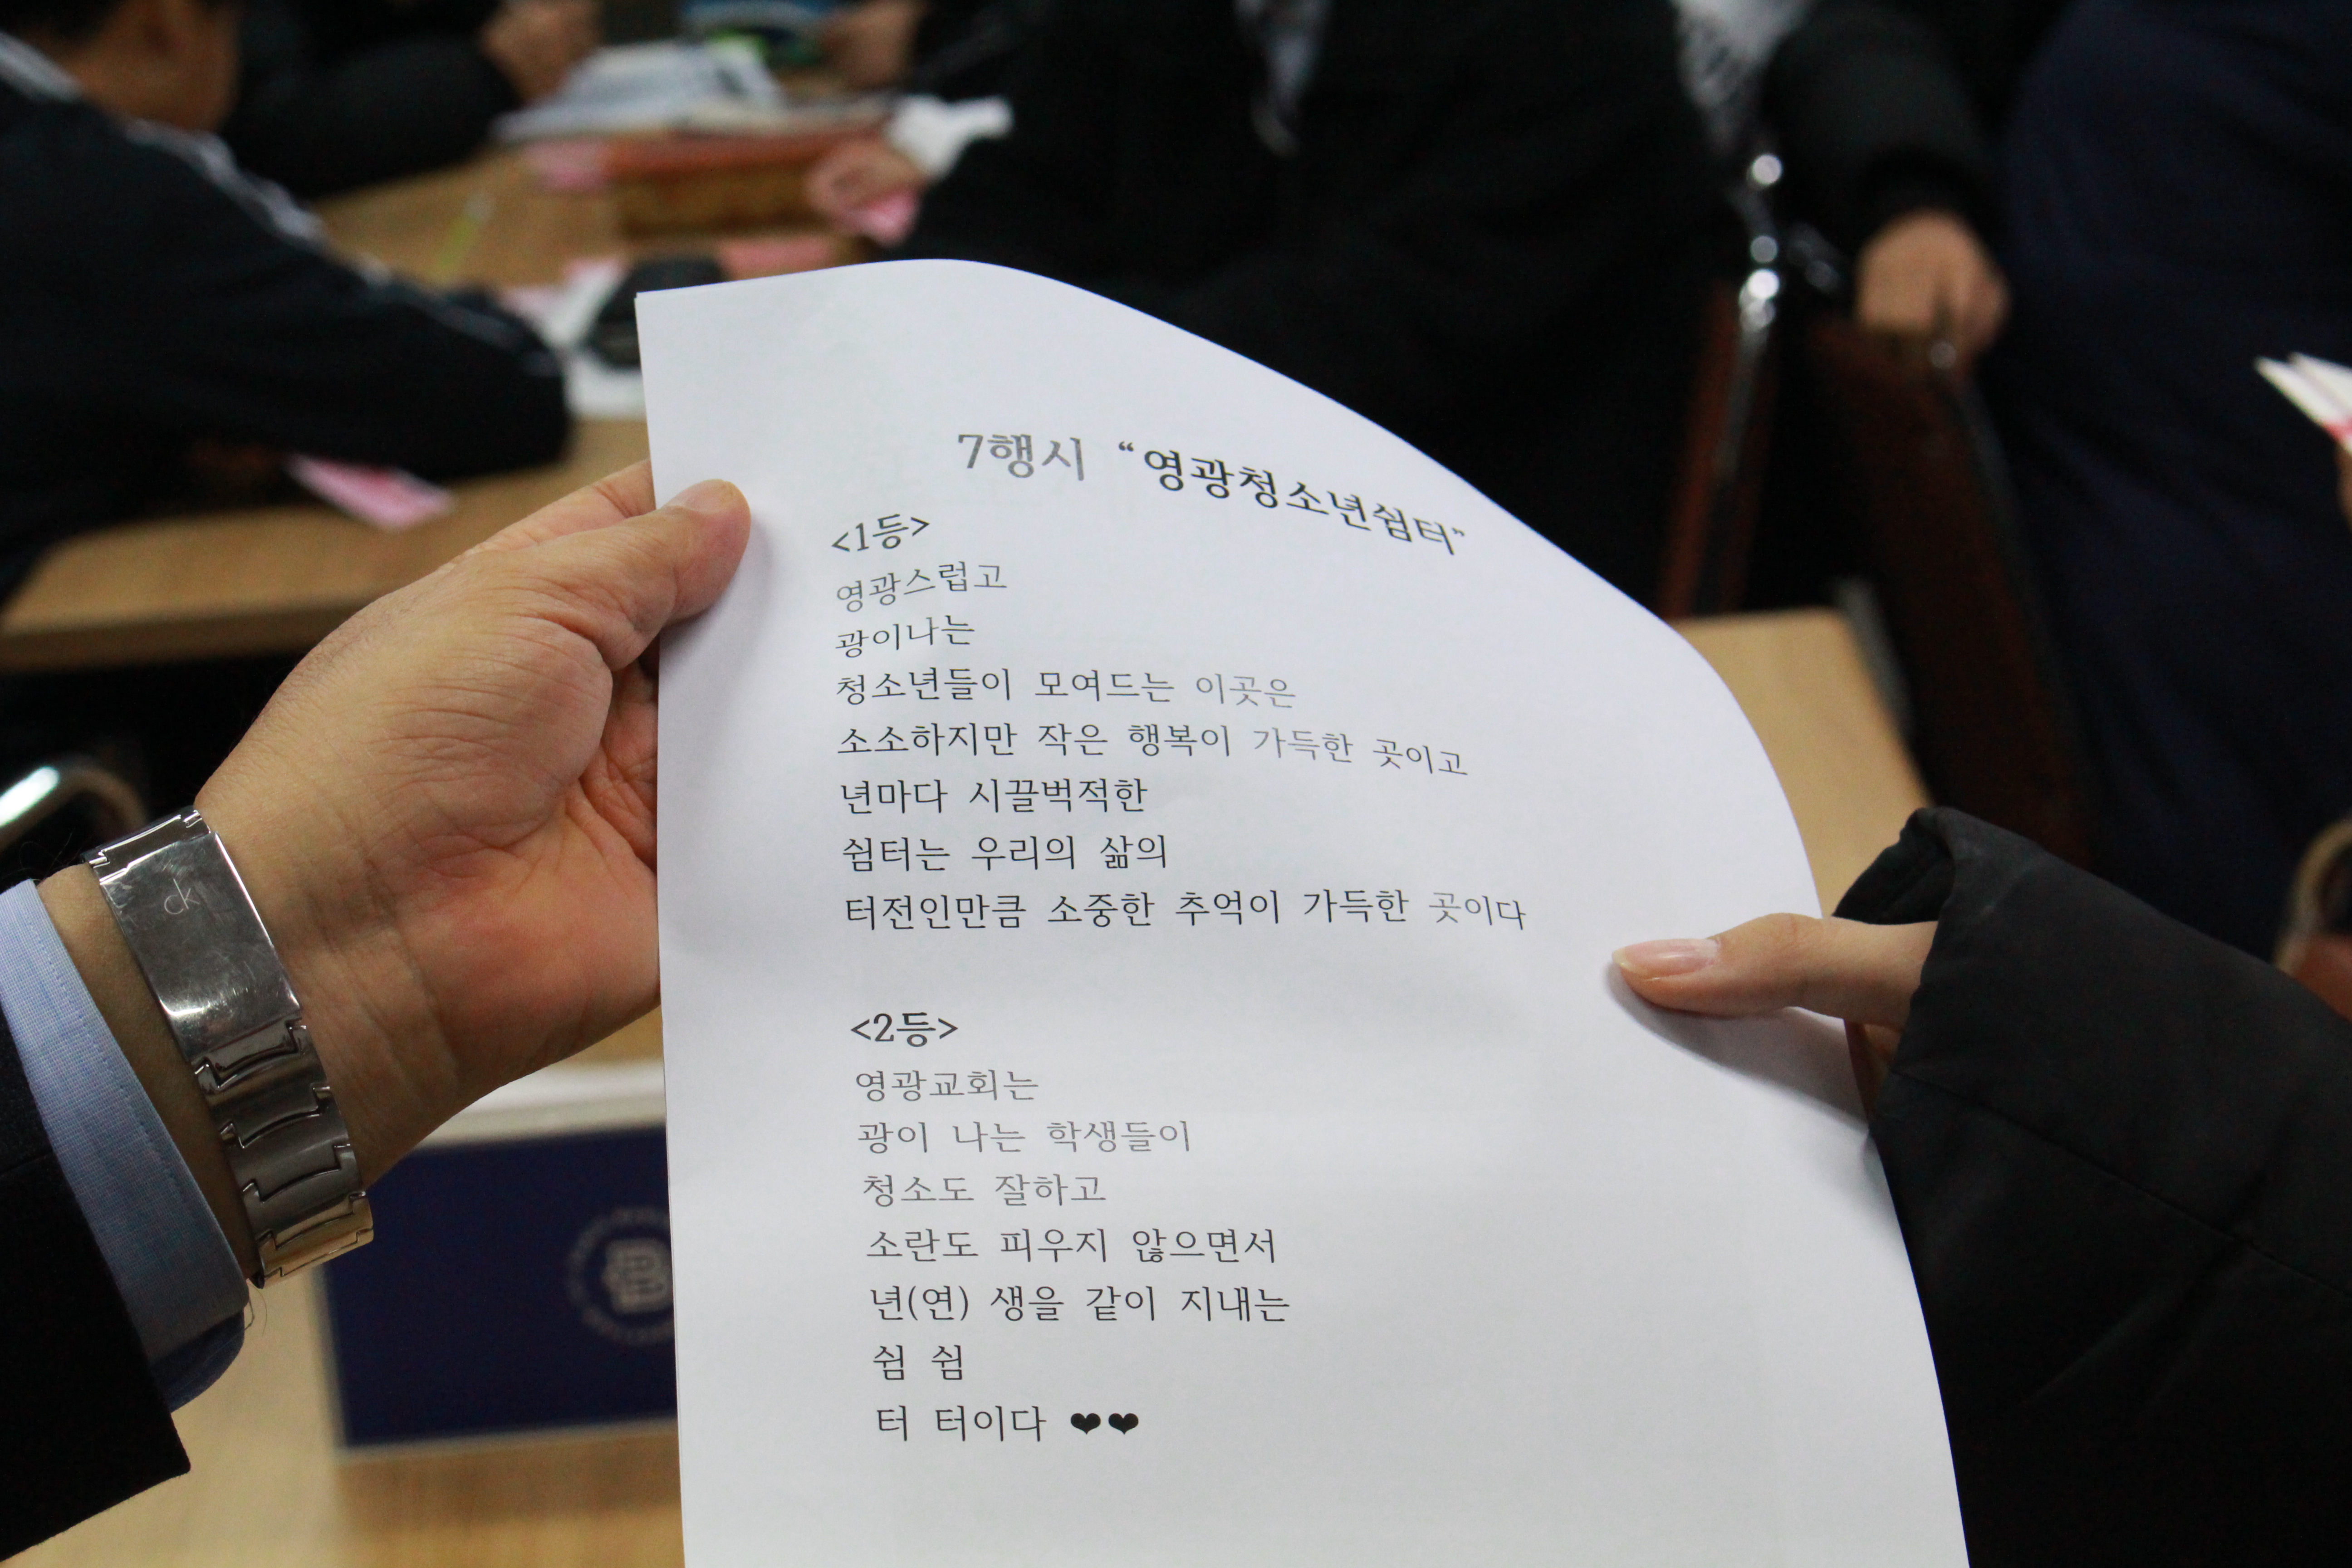 7행시 “영광청소년쉼터”
<1등>
영광스럽고
광이나는
청소년들이 모여드는 이곳은
소소하지만 작은 행복이 가득한 곳이고
년마다 시끌벅적한
쉼터는 우리의 삶의
터전인만큼 소중한 추억이 가득한 곳이다
<2등>
영광교회는
광이 나는 학생들이
청소도 잘하고
소란도 피우지 않으면서
년(연) 생을 같이 지내는
쉼 쉼
터 터이다 ❤❤
ck